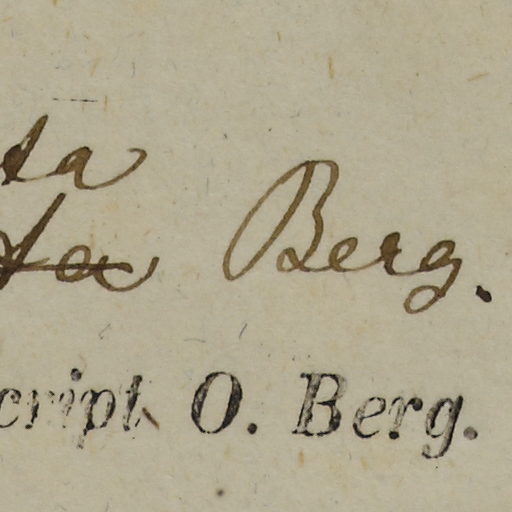 ta
Berg.
cript. O. Berg.